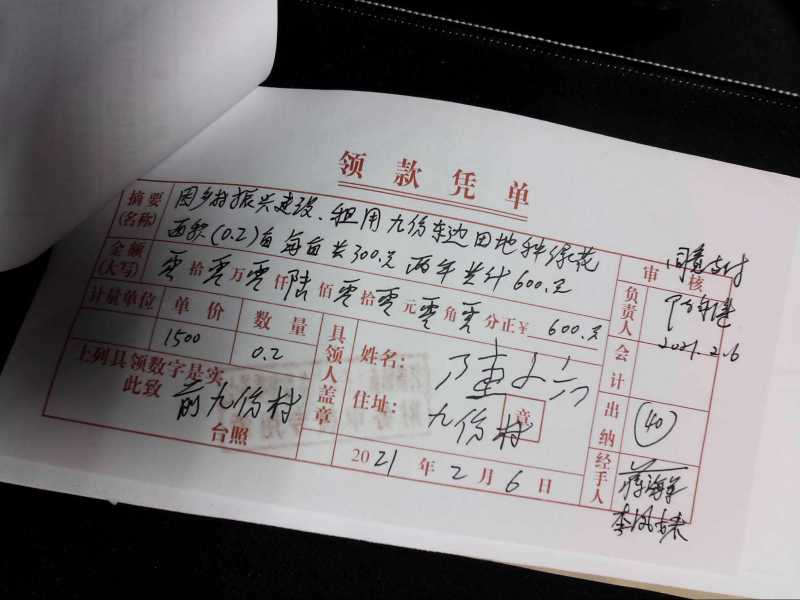 领款凭单
摘要(名称) 因乡村振兴建设、租用九份东边田地种绿花
面积(0.2)亩 每亩长300.元 两年共计600.元
金额(大写) 零拾零万零仟陆佰零拾零元零角零分正¥ 600.元
计量单位 单价 数量
1500 0.2
上列具领数字是实
此致 前九份村
台照
具领人盖章
姓名:
住址: 九份村
章
2021年2月6日
同意支付
审核
负责人
2021.2.6
会计
出纳 (40)
经手人 蒋海军
李凤